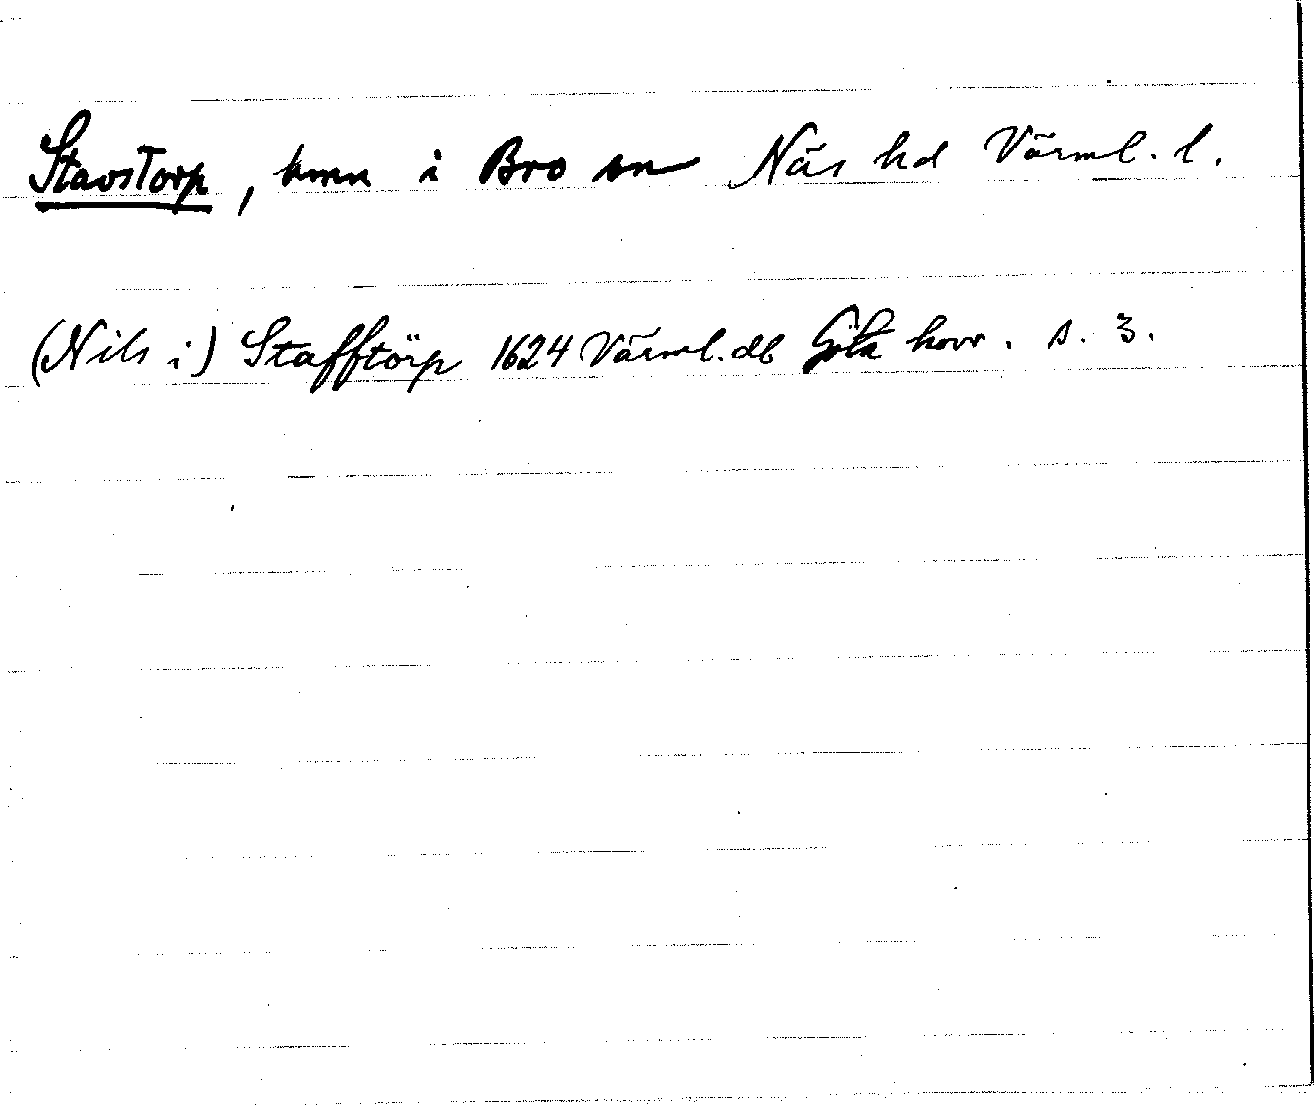 Stavstorp, hmn i Bro sn Näs hd Värml. l.
(Nils i) Stafftörp 1624 Värml. db Göta hovr. s. 3.